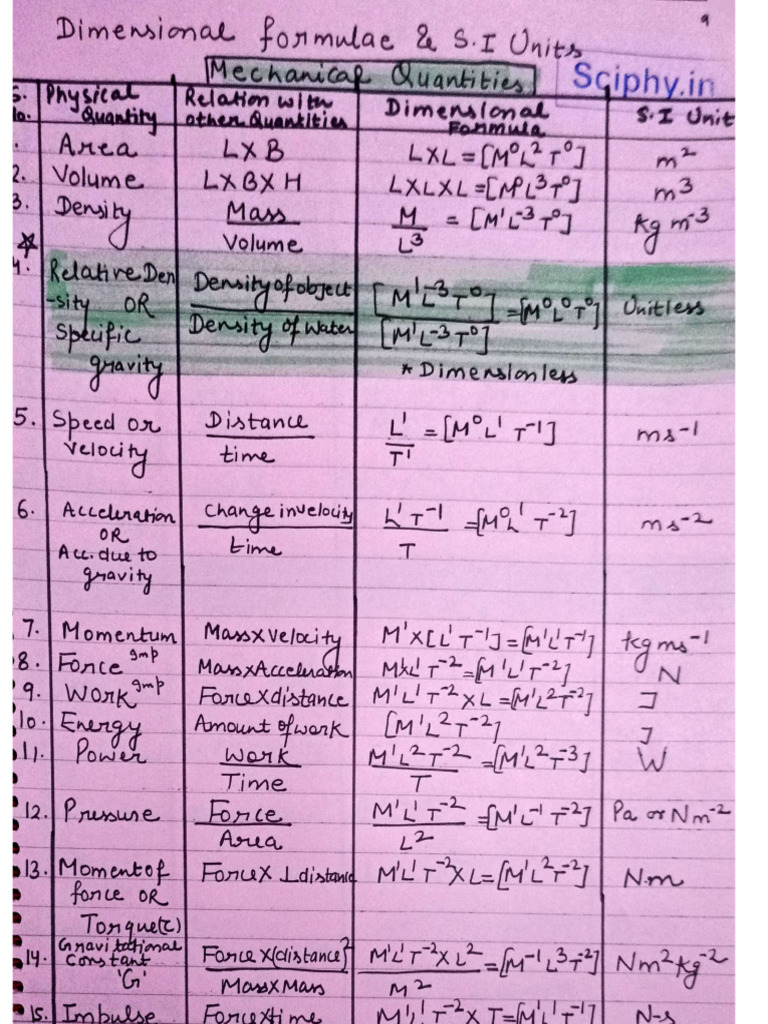 9
Dimensional formulae & S.I Units
Mechanical Quantities
Sciphy.in
S. No. | Physical Quantity | Relation with other Quantities | Dimensional Formula | S.I Unit
1. Area | L×B | L×L = [M⁰L²T⁰] | m²
2. Volume | L×B×H | L×L×L = [M⁰L³T⁰] | m³
3. Density | Mass / Volume | M / L³ = [M¹L⁻³T⁰] | kg m⁻³
4. Relative Den-sity OR Specific gravity | Density of object / Density of Water | [M¹L⁻³T⁰] / [M¹L⁻³T⁰] = [M⁰L⁰T⁰] | Unitless
* Dimensionless
5. Speed or velocity | Distance / time | L¹ / T¹ = [M⁰L¹T⁻¹] | ms⁻¹
6. Acceleration OR Acc. due to gravity | Change in velocity / time | L¹T⁻¹ / T = [M⁰L¹T⁻²] | ms⁻²
7. Momentum | Mass×velocity | M¹×[L¹T⁻¹] = [M¹L¹T⁻¹] | kg ms⁻¹
8. Force imp | Mass×Acceleration | M×L¹T⁻² = [M¹L¹T⁻²] | N
9. Work imp | Force×distance | M¹L¹T⁻²×L = [M¹L²T⁻²] | J
10. Energy | Amount of work | [M¹L²T⁻²] | J
11. Power | Work / Time | M¹L²T⁻² / T = [M¹L²T⁻³] | W
12. Pressure | Force / Area | M¹L¹T⁻² / L² = [M¹L⁻¹T⁻²] | Pa or Nm⁻²
13. Moment of force OR Torque(τ) | Force×⊥distance | M¹L¹T⁻²×L = [M¹L²T⁻²] | N.m
14. Gravitational Constant 'G' | Force×(distance)² / Mass×Mass | M¹L¹T⁻²×L² / M² = [M⁻¹L³T⁻²] | Nm²kg⁻²
15. Impulse | Force×time | M¹L¹T⁻²×T = [M¹L¹T⁻¹] | N-s